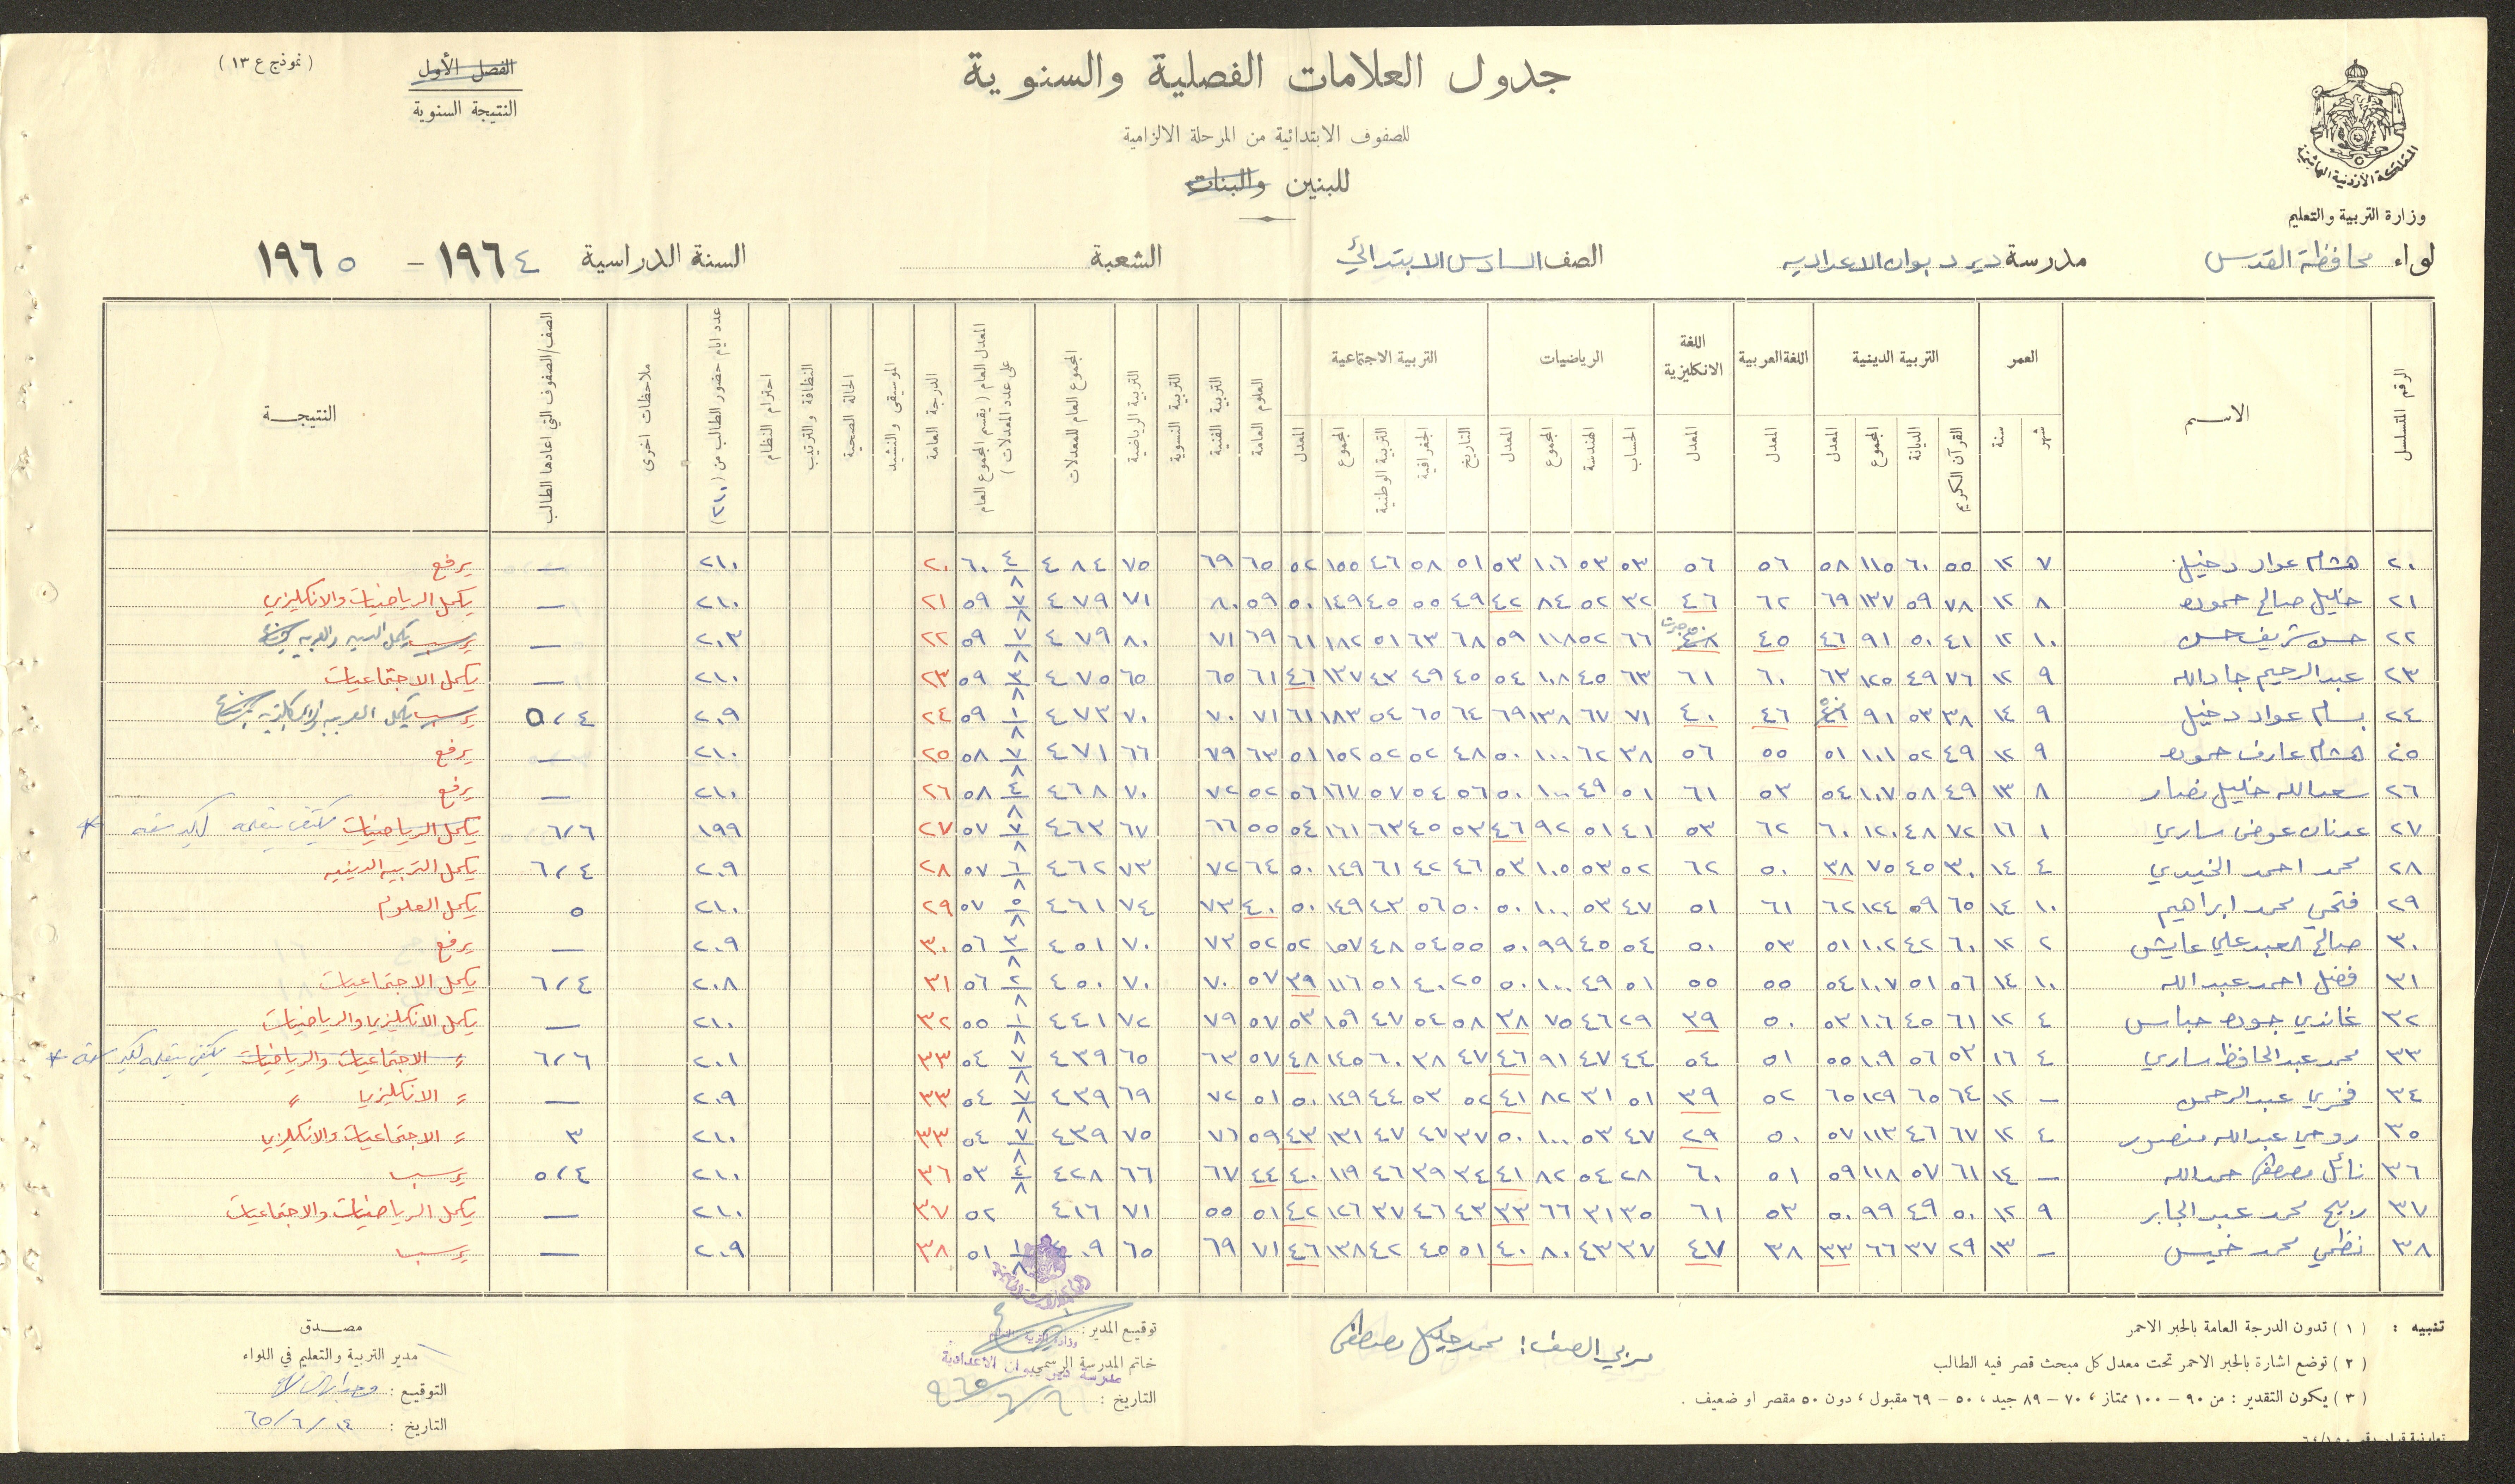 (نموذج ع ١٣)
الفصل الأول
النتيجة السنوية
جدول العلامات الفصلية والسنوية
للصفوف الابتدائية من المرحلة الالزامية
للبنين والبنات
المملكة الأردنية الهاشمية
وزارة التربية والتعليم
لواء محافظة القدس مدرسة دير دبوان الاعدادية الصف السادس الابتدائي الشعبة السنة الدراسية ١٩٦٤ - ١٩٦٥
الرقم المتسلسل الاسم العمر شهر سنة التربية الدينية القرآن الكريم الديانة المجموع المعدل اللغة العربية المعدل اللغة الانكليزية المعدل الرياضيات الحساب الهندسة المجموع المعدل التربية الاجتماعية التاريخ الجغرافية التربية الوطنية المجموع المعدل العلوم العامة التربية الفنية التربية النسوية التربية الرياضية المجموع العام للمعدلات المعدل العام (يقسم المجموع العام على عدد المعدلات) الدرجة العامة الموسيقى والنشيد الحالة الصحية النظافة والترتيب احترام النظام عدد ايام حضور الطالب من (٢١٠) ملاحظات اخرى الصف/الصفوف التي اعادها الطالب النتيجة
٢٠ هشام عواد دخيل ٧ ١٢ ٥٥ ٦٠ ١١٥ ٥٨ ٥٦ ٥٦ ٥٣ ٥٣ ١٠٦ ٥٣ ٥١ ٥٨ ٤٦ ١٥٥ ٥٢ ٦٥ ٦٩ ٧٥ ٤٨٤ ٦٠ ٤/٨ ٢٠ ٢١٠ — يرفع
٢١ خليل صالح حموده ٨ ١٢ ٧٨ ٥٩ ١٣٧ ٦٩ ٦٢ ٤٦ ٣٢ ٥٢ ٨٤ ٤٢ ٤٩ ٥٥ ٤٥ ١٤٩ ٥٠ ٥٩ ٨٠ ٧١ ٤٧٩ ٥٩ ٧/٨ ٢١ ٢١٠ — يكمل الرياضيات والانكليزي
٢٢ حسن شريف حسن ١٠ ١٢ ٤١ ٥٠ ٩١ ٤٦ ٤٥ ٤٨ ٦٦ ٥٢ ١١٨ ٥٩ ٦٨ ٦٣ ٥١ ١٨٢ ٦١ ٦٩ ٧١ ٨٠ ٤٧٩ ٥٩ ٧/٨ ٢٢ ٢٠٣ — يرسب
٢٣ عبد الرحيم جاد الله ٩ ١٢ ٧٦ ٤٩ ١٢٥ ٦٣ ٦٠ ٦١ ٦٣ ٤٥ ١٠٨ ٥٤ ٤٥ ٤٩ ٤٣ ١٣٧ ٤٦ ٦١ ٦٥ ٦٥ ٤٧٥ ٥٩ ٣/٨ ٢٣ ٢١٠ — يكمل الاجتماعيات
٢٤ بسام عواد دخيل ٩ ١٤ ٣٨ ٥٣ ٩١ ٤٦ ٤٠ ٧١ ٦٧ ١٣٨ ٦٩ ٦٤ ٦٥ ٥٤ ١٨٣ ٦١ ٧١ ٧٠ ٧٠ ٤٧٣ ٥٩ ١/٨ ٢٤ ٢٠٩ ٥/٤ يرسب
٢٥ هشام عارف حموده ٩ ١٢ ٤٩ ٥٢ ١٠١ ٥١ ٥٥ ٥٦ ٣٨ ٦٢ ١٠٠ ٥٠ ٤٨ ٥٢ ٥٢ ١٥٢ ٥١ ٦٣ ٧٩ ٦٦ ٤٧١ ٥٨ ٧/٨ ٢٥ ٢١٠ — يرفع
٢٦ سعدالله خليل نصار ٨ ١٣ ٤٩ ٥٨ ١٠٧ ٥٤ ٥٣ ٦١ ٥١ ٤٩ ١٠٠ ٥٠ ٥٦ ٥٤ ٥٧ ١٦٧ ٥٦ ٥٢ ٧٢ ٧٠ ٤٦٨ ٥٨ ٤/٨ ٢٦ ٢١٠ — يرفع
٢٧ عدنان عوض ساري ١ ١٦ ٧٢ ٤٨ ١٢٠ ٦٠ ٦٢ ٥٣ ٤١ ٥١ ٩٢ ٤٦ ٥٣ ٤٥ ٦٣ ١٦١ ٥٤ ٥٥ ٦٦ ٦٧ ٤٦٣ ٥٧ ٧/٨ ٢٧ ١٩٩ ٦/٦ يكمل الرياضيات يكتفى بتعلمه لكبر سنه *
٢٨ محمد احمد الخيدي ٤ ١٤ ٣٠ ٤٥ ٧٥ ٣٨ ٥٠ ٦٢ ٥٢ ٥٣ ١٠٥ ٥٣ ٤٦ ٤٢ ٦١ ١٤٩ ٥٠ ٦٤ ٧٢ ٧٣ ٤٦٢ ٥٧ ٦/٨ ٢٨ ٢٠٩ ٦/٤ يكمل التربيه الدينيه
٢٩ فتحي محمد ابراهيم ١٠ ١٤ ٦٥ ٥٩ ١٢٤ ٦٢ ٦١ ٥١ ٤٧ ٥٣ ١٠٠ ٥٠ ٥٠ ٥٦ ٤٣ ١٤٩ ٥٠ ٤٠ ٧٣ ٧٤ ٤٦١ ٥٧ ٥/٨ ٢٩ ٢١٠ ٥ يكمل العلوم
٣٠ صالح العبد علي عايش ٢ ١٢ ٦٠ ٤٢ ١٠٢ ٥١ ٥٣ ٥٠ ٥٤ ٤٥ ٩٩ ٥٠ ٥٥ ٥٤ ٤٨ ١٥٧ ٥٢ ٥٢ ٧٣ ٧٠ ٤٥١ ٥٦ ٣/٨ ٣٠ ٢٠٩ — يرفع
٣١ فضل احمد عبد الله ١٠ ١٤ ٥٦ ٥١ ١٠٧ ٥٤ ٥٥ ٥٥ ٥١ ٤٩ ١٠٠ ٥٠ ٢٥ ٤٠ ٥١ ١١٦ ٣٩ ٥٧ ٧٠ ٧٠ ٤٥٠ ٥٦ ٢/٨ ٣١ ٢٠٨ ٦/٤ يكمل الاجتماعيات
٣٢ غاندي جوده حباس ٤ ١٢ ٦١ ٤٥ ١٠٦ ٥٣ ٥٠ ٣٩ ٢٩ ٤٦ ٧٥ ٣٨ ٥٨ ٥٤ ٤٧ ١٥٩ ٥٣ ٥٧ ٧٩ ٧٢ ٤٤١ ٥٥ ١/٨ ٣٢ ٢١٠ — يكمل الانكليزي والرياضيات
٣٣ محمد عبد الحافظ ساري ٤ ١٦ ٥٣ ٥٦ ١٠٩ ٥٥ ٥١ ٥٤ ٤٤ ٤٧ ٩١ ٤٦ ٤٧ ٣٨ ٦٠ ١٤٥ ٤٨ ٥٧ ٦٣ ٦٥ ٤٣٩ ٥٤ ٧/٨ ٣٣ ٢٠١ ٦/٦ " الاجتماعيات والرياضيات يكتفى بتعلمه لكبر سنه *
٣٤ فخري عبد الرحمن — ١٢ ٦٤ ٦٥ ١٢٩ ٦٥ ٥٢ ٣٩ ٥١ ٣١ ٨٢ ٤١ ٥٢ ٥٣ ٤٤ ١٤٩ ٥٠ ٥١ ٧٢ ٦٩ ٤٣٩ ٥٤ ٧/٨ ٣٣ ٢٠٩ — " الانكليزيا "
٣٥ روحي عبدالله منصور ٤ ١٢ ٦٧ ٤٦ ١١٣ ٥٧ ٥٠ ٢٩ ٤٧ ٥٣ ١٠٠ ٥٠ ٣٧ ٤٧ ٤٧ ١٣١ ٤٣ ٥٩ ٧٦ ٧٥ ٤٣٩ ٥٤ ٧/٨ ٣٣ ٢١٠ ٣ " الاجتماعيات والانكليزي
٣٦ نائل مصطفى حمدالله — ١٤ ٦١ ٥٧ ١١٨ ٥٩ ٥١ ٦٠ ٢٨ ٥٤ ٨٢ ٤١ ٣٤ ٣٩ ٤٦ ١١٩ ٤٠ ٤٤ ٦٧ ٦٦ ٤٢٨ ٥٣ ٤/٨ ٣٦ ٢١٠ ٥/٤ يرسب
٣٧ ربيح محمد عبد الجابر ٩ ١٢ ٥٠ ٤٩ ٩٩ ٥٠ ٥٣ ٦١ ٣٥ ٣١ ٦٦ ٣٣ ٤٣ ٤٦ ٣٧ ١٢٦ ٤٢ ٥١ ٥٥ ٧١ ٤١٦ ٥٢ ٣٧ ٢١٠ — يكمل الرياضيات والاجتماعيات
٣٨ نظمي محمد خميس — ١٣ ٢٩ ٣٧ ٦٦ ٣٣ ٣٨ ٤٧ ٣٧ ٤٣ ٨٠ ٤٠ ٥١ ٤٥ ٤٢ ١٣٨ ٤٦ ٧١ ٦٩ ٦٥ ٠٩ ٥١ ١/٨ ٣٨ ٢٠٩ — يرسب
تنبيه : (١) تدون الدرجة العامة بالحبر الاحمر
(٢) توضع اشارة بالحبر الاحمر تحت معدل كل مبحث قصر فيه الطالب
(٣) يكون التقدير : من ٩٠ – ١٠٠ ممتاز ، ٧٠ – ٨٩ جيد ، ٥٠ – ٦٩ مقبول ، دون ٥٠ مقصر او ضعيف .
مربي الصف : محمد خليل مصطفى
توقيع المدير :
خاتم المدرسة الرسمي
مدرسة دير دبوان الاعدادية
التاريخ :
مصدق
مدير التربية والتعليم في اللواء
التوقيع :
التاريخ : ١٤/٦/٦٥